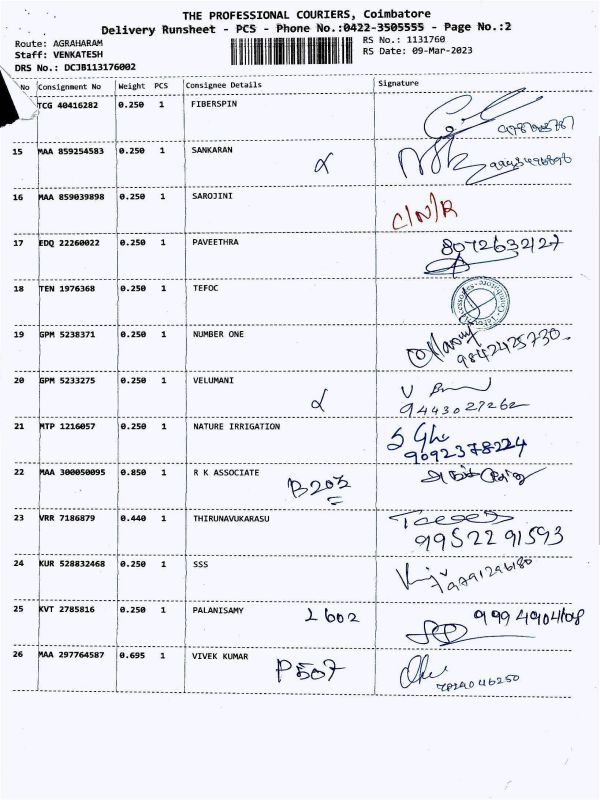 THE PROFESSIONAL COURIERS, Coimbatore
Delivery Runsheet - PCS - Phone No.:0422-3505555 - Page No.:2
Route: AGRAHARAM RS No.: 1131760
Staff: VENKATESH RS Date: 09-Mar-2023
DRS No.: DCJB113176002
No Consignment No Weight PCS Consignee Details Signature
TCG 40416282 0.250 1 FIBERSPIN
15 MAA 859254583 0.250 1 SANKARAN
16 MAA 859039898 0.250 1 SAROJINI C/N/R
17 EDQ 22260022 0.250 1 PAVEETHRA 8072632127
18 TEN 1976368 0.250 1 TEFOC
19 GPM 5238371 0.250 1 NUMBER ONE 9842425730
20 GPM 5233275 0.250 1 VELUMANI
9443027262
21 MTP 1216057 0.250 1 NATURE IRRIGATION
9092378224
22 MAA 300050095 0.850 1 R K ASSOCIATE B203
23 VRR 7186879 0.440 1 THIRUNAVUKARASU
9952291593
24 KUR 528832468 0.250 1 SSS 9791296180
25 KVT 2785816 0.250 1 PALANISAMY L602
26 MAA 297764587 0.695 1 VIVEK KUMAR P507